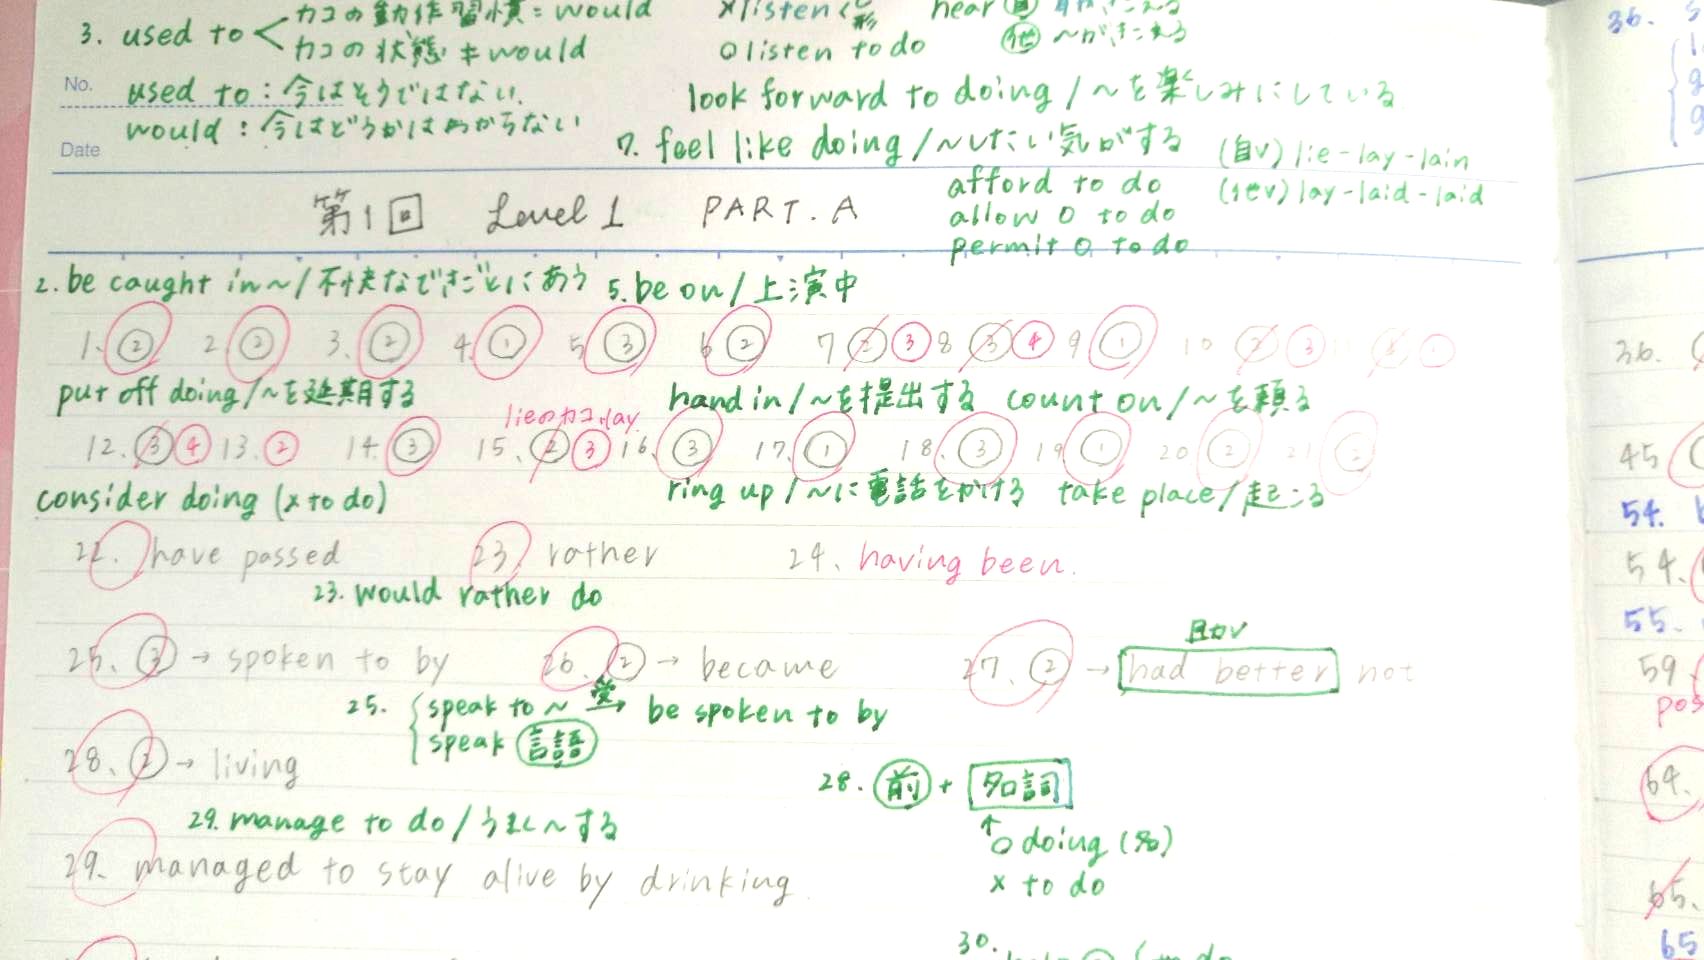 3. used to < カコの動作習慣 = would
カコの状態 ≠ would
×listen
hear
○listen to do
他 〜がきこえる
No.
used to : 今はそうではない.
would : 今はどうかはわからない
look forward to doing / 〜を楽しみにしている
Date
7. feel like doing / 〜したい気がする
(自v) lie - lay - lain
(他v) lay - laid - laid
afford to do
allow O to do
permit O to do
第1回 Level 1 PART. A
2. be caught in〜 / 不快なできごとにあう 5. be on / 上演中
1. ② 2. ② 3. ② 4. ① 5 ③ 6 ② 7 ② ③ 8 ③ ④ 9 ① 10 ② ③
put off doing / 〜を延期する hand in / 〜を提出する count on / 〜を頼る
lieのカコ lay
12. ③ ④ 13. ② 14. ③ 15. ② ③ 16. ③ 17. ① 18. ③ 19. ① 20. ② 21. ②
consider doing (× to do) ring up / 〜に電話をかける take place / 起こる
22. have passed 23. rather 24. having been.
23. would rather do
助v
25. ③ → spoken to by 26. ② → became 27. ② → had better not
25. { speak to 〜 受→ be spoken to by
speak 言語
28. ② → living
28. 前 + 名詞
↑○ doing (%)
× to do
29. manage to do / うまく〜する
29. managed to stay alive by drinking
30.
36.
36.
45
54.
54.
55.
59
64.
65.
65